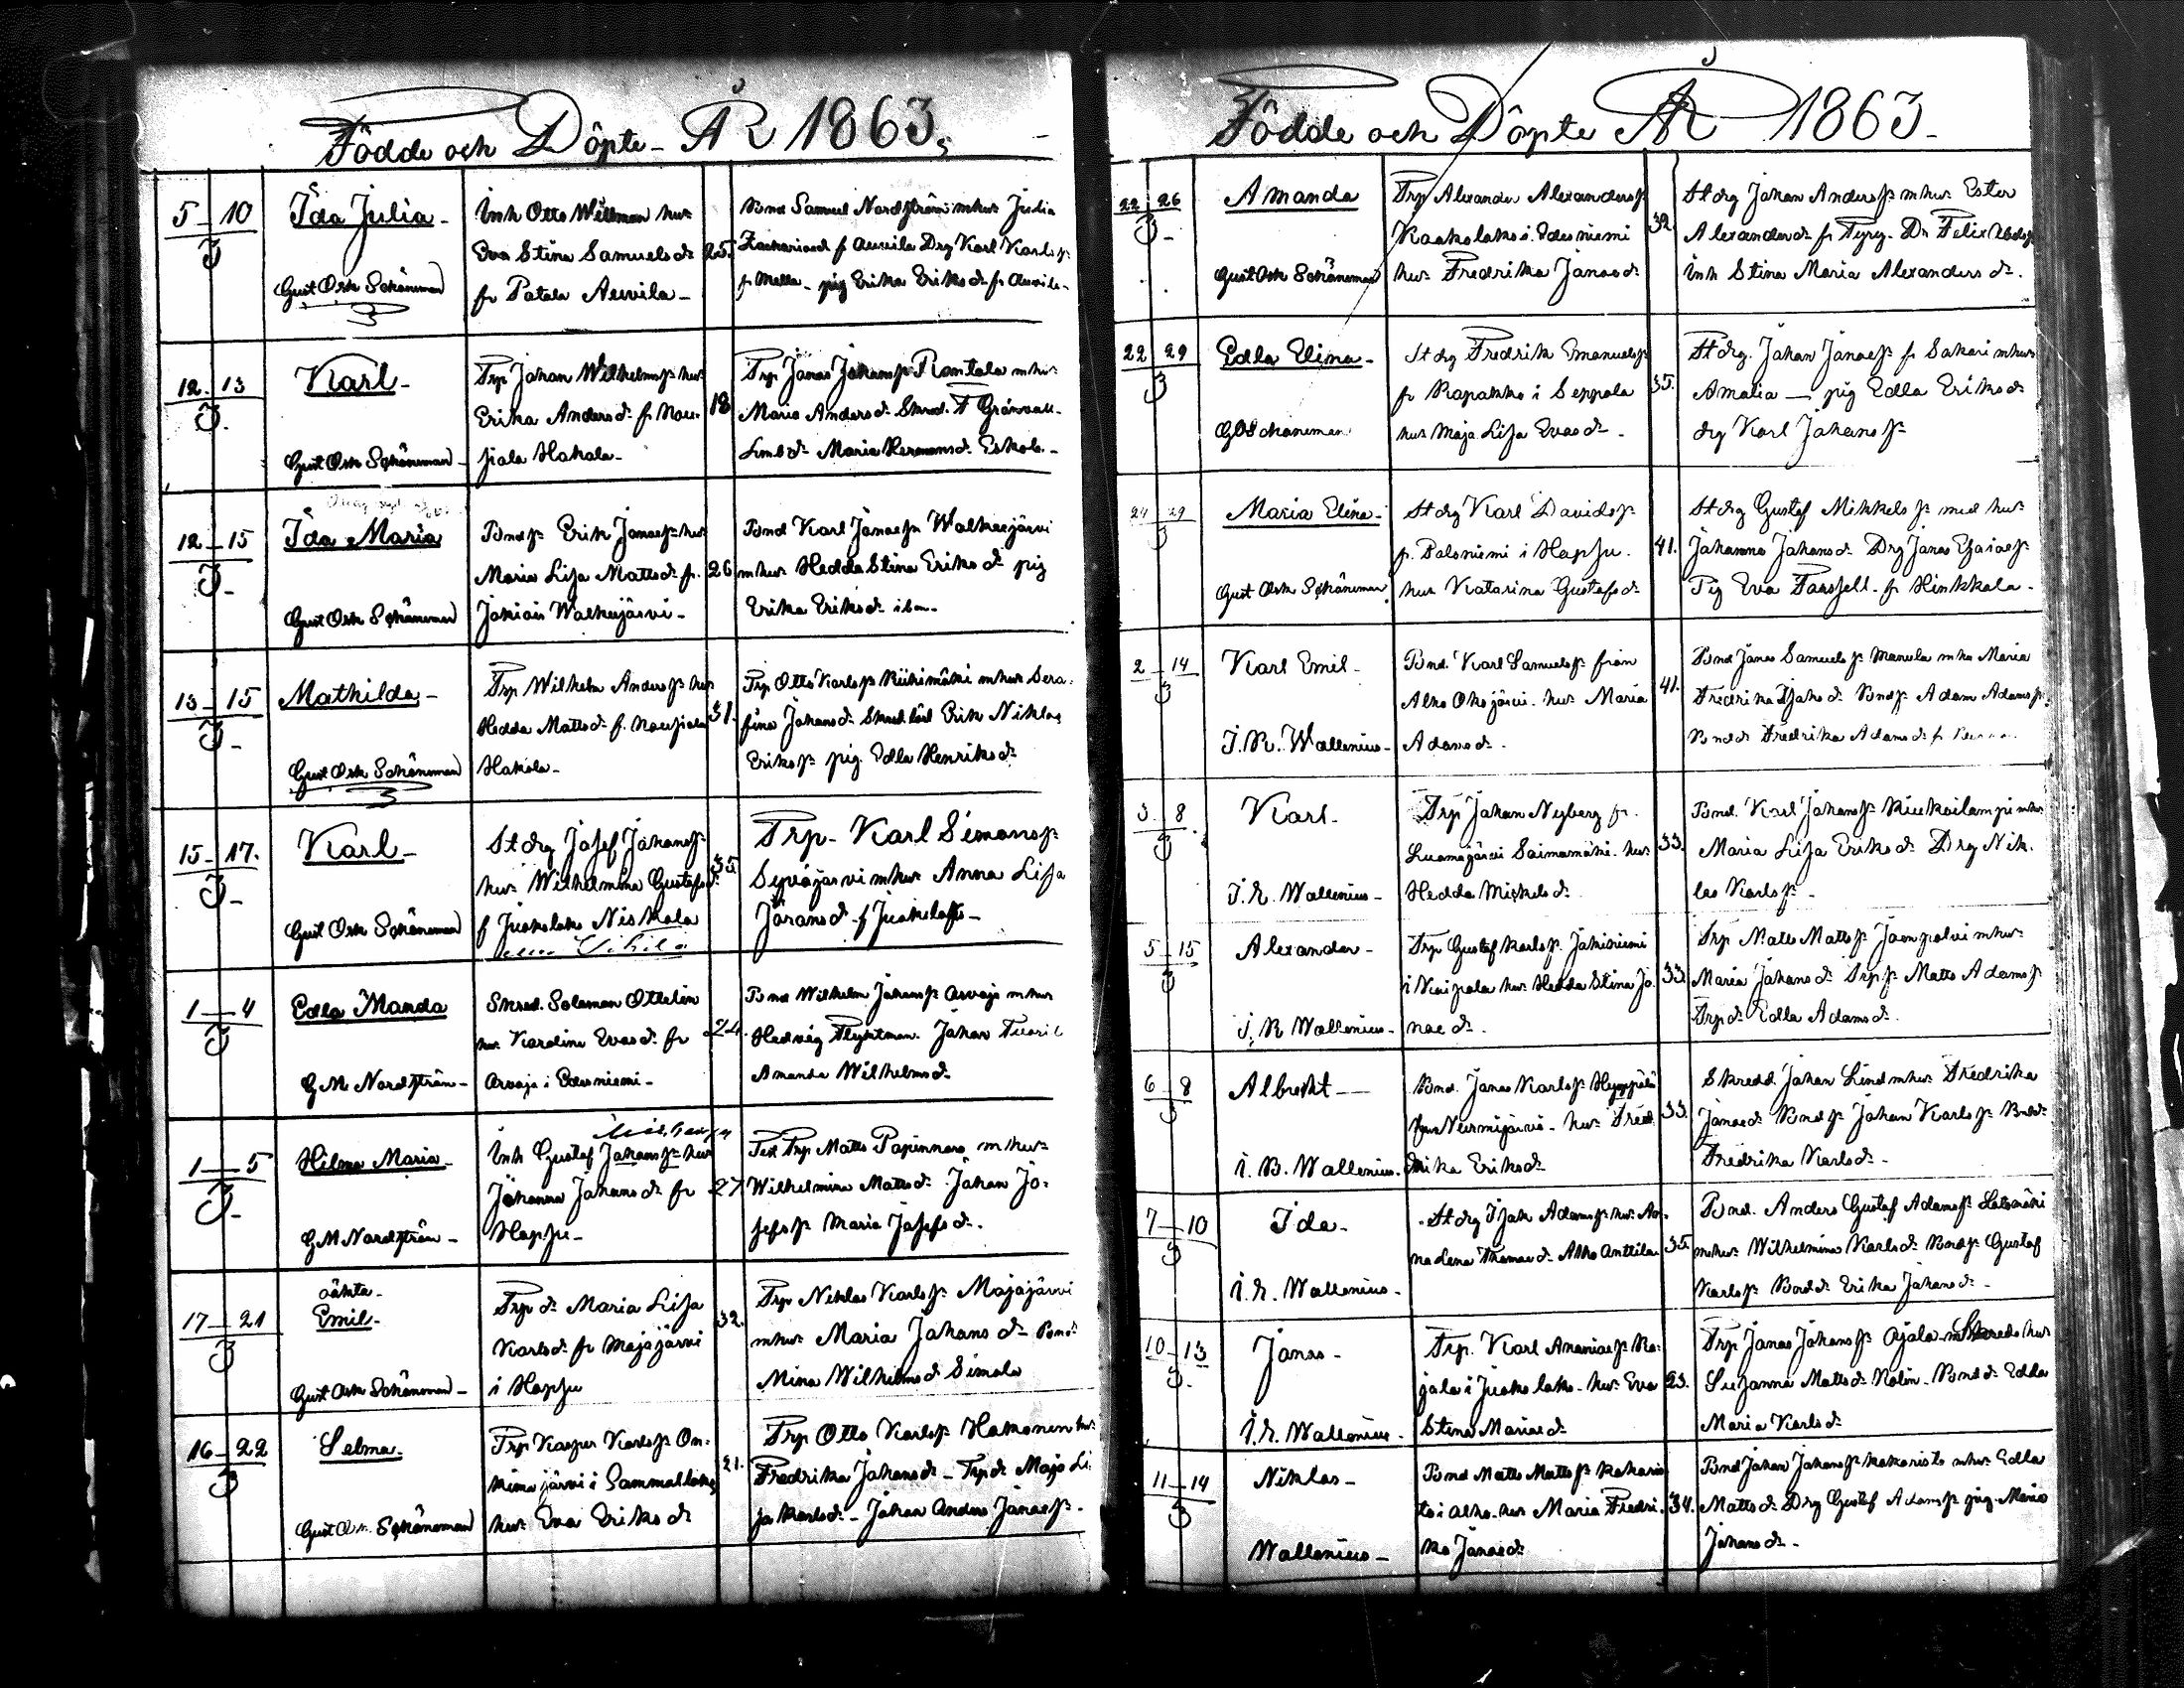 Födde och Döpte - ÅR 1863.
5 - 10
3
Ida Julia -
Gust Osk Schöneman
Inh Otto Willman hus:
Eva Stina Samuelsdr
fr Patala Auvila -
25.
Bond Samuel Nordström mhus Julia
Zachariasd fr Auvila Drg Karl Karlsp
fr Mella - pig Erika Eriksdr fr Auvila -
12 - 13
3.
Karl -
Gust Osk Schöneman -
Trp Johan Wilhelmsp hus:
Erika Andersdr fr Nau-
piala Hakala -
18
Trp Jonas Johansp Rantala mhus
Maria Andersdr Skred. F Gränvall -
Maria Hermansd Eskola -
12 - 15
3 -
Ida Maria
Gust Osk Schöneman
Bondsp Erik Jonaesp hus
Maria Lisa Mattsdr fr.
Jokiais Walkeejärvi -
26
Bond Karl Jonaesp Walkeejärvi
mhus Hedda Stina Eriksdr pig
Erika Eriksdr ibm -
13 - 15
3 -
Mathilda -
Gust Osk Schöneman
Trp Wilhelm Andersp hus
Hedda Mattsdr fr. Naupiala
Hakala -
31.
Trp Otto Karlsp Riihimäki mhus Sera-
fina Johansdr Erik Niklas
Eriksp pig Edla Henriksdr
15 - 17.
3 -
Karl -
Gust Osk Schöneman
St drg Josef Johansp
hus Wilhelmina Gustafsd:
f Juokslaks Niskala
35
Trp - Karl Simonsp
Syväjärvi mhus Anna Lisa
Göransd - f Juokslaks -
1 - 4
3
Edla Manda
G M Nordström -
Skred. Soloman Ottelin
hus Karolina Evasdr fr
Arvaja i Edesniemi -
24.
Bond Wilhelm Johansp Arvaja mhus
Hedvig Flyktman. Johan
Amanda Wilhelmsdr
1 - 5
3 -
Hilma Maria -
G M Nordström -
Inh Gustaf Johansp hus
Johanna Johansdr fr
Hapsu -
27
Trp Matts Papinnaro mhus
Wilhelmina Mattsdr Johan Jo-
sefsp Maria Josefsdr.
17 - 21
3
oäkta -
Emil -
Gust Osk Schöneman -
Trp dr Maria Lisa
Karlsdr fr Majajärvi
i Hapsu
32.
Trp Niklas Karlsp Majajärvi
mhus Maria Johansdr - Bondr
Mina Wilhelmsdr Simola
16 - 22
3
Selma -
Gust Osk Schöneman
Trp Kasper Karlsp On-
kimajärvi i Sammallaks
hus Eva Eriksdr
21.
Trp Otto Karlsp Hakonen hus
Fredrika Johansdr - Trpdr Maja Li-
sa Karlsdr - Johan Anders Jonaesp.
Födde och Döpte ÅR 1863 -
22 - 26
3 -
Amanda
Gust Osk Schöneman
Trp Alexander Alexandersp
Kaakolaks i Edesniemi
hus Fredrika Jonasd
32
St drg Johan Andersp mhus Ester
Alexandersdr fr Dr Felix
Inh Stina Maria Alexandersdr.
22 29
3
Edla Elina -
G O Schöneman
St drg Fredrik Emanuelsp
fr Rapakko i Seppola
hus Maja Lisa Evasdr -
35.
St drg. Johan Jonaesp fr Sakari mhus
Amalia - pig Edla Eriksdr
drg Karl Johansp
24 29
3
Maria Elina -
Gust Osk Schöneman
St drg Karl Davidsp
fr. Paloniemi i Hapsu.
hus Katarina Gustafsdr
41.
St drg Gustaf Mikkelsp med hus
Johanna Johansdr Drg Jonas Esaiaesp
Pig Eva Forssell. fr Hinkkala -
2 - 14
3
Karl Emil -
J. R. Wallenius -
Bond. Karl Samuelsp från
Alho Ohojärvi. hus Maria
Adamsdr.
41.
Bond Jonas Samuelsp Manula mhus Maria
Fredrika Isaksdr Bondsp Adam Adamsp.
Bonddr Fredrika Adamsdr fr
3 8
3
Karl -
J. R. Wallenius -
Trp Johan Nyberg fr.
Luomajärvi Saimamäki. hus
Hedda Mickelsdr.
33.
Bond. Karl Johansp Kiukailampi mhus
Maria Lisa Eriksdr Drg Nik-
las Karlsp -
5 - 15
3
Alexander -
J. R Wallenius -
Trp Gustaf Karlsp. Jokiniemi
i Naipala hus Hedda Stina Jo-
nae dr.
33.
Trp Matts Mattsp mhus
Maria Johansdr Trpsp Matts Adamsp
Trpdr Edla Adamsdr.
6 - 8
3
Albrekt -
J. R. Wallenius.
Bond. Jonas Karlsp Heppälä
Nurmijärvi - hus Fred-
rika Eriksdr
33.
Skredd Johan Lind mhus Fredrika
Jonaedr Bondsp Johan Karlsp Bonddr
Fredrika Karlsdr -
7 - 10
3
Ida -
J. R. Wallenius -
St drg Isak Adamsp hus An-
na Lena Thomaedr Alho Anttila
35
Bond. Anders Gustaf Adamsp
mhus Wilhelmina Karlsdr Bondsp Gustaf
Karlsp Bonddr Erika Johansdr -
10 - 13
3.
Jonas -
J. R. Wallenius -
Trp. Karl Ananiaesp Ra-
jala i Juokslaks - hus Eva
Stina Mariaedr
23.
Trp Jonas Johansp Ojala - hus
Susanna Mattsdr Rolin - Bonddr Edda
Maria Karlsdr
11 - 14
3
Niklas -
Wallenius -
Bond Matts Mattsp Kokaris-
to i Alho - hus Maria Fredri-
ka Jonaedr
34.
Bond Johan Johansp Kokaristo mhus Edla
Mattsdr Drg Gustaf Adamsp pig - Maria
Johansdr -